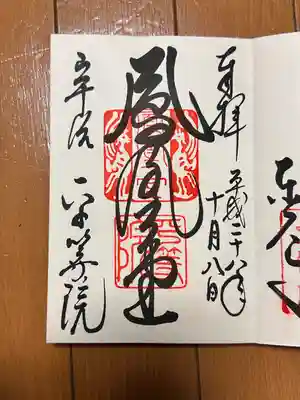 奉拝
平成二十八年
十月八日
鳳凰堂
平等院